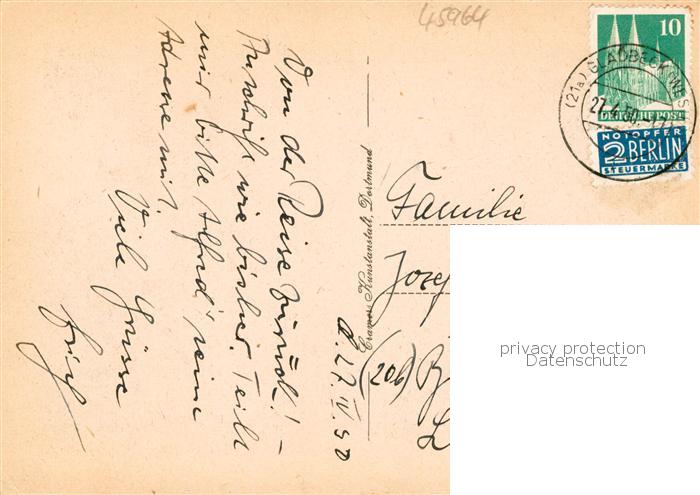 45964
10
DEUTSCHE POST
NOTOPFER
2 BERLIN
STEUERMARKE
(21a) GLADBECK (WESTF
27.4.50.
Von der Reise zurück! –
Anschrift wie bisher. Teilt
mir bitte Alfred's seine
Adresse mit.
Viele Grüsse
27. IV. 50
Cramers Kunstanstalt, Dortmund
Familie
Josef
(20b) B
L
privacy protection
Datenschutz